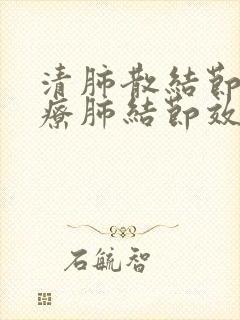 清肺散結節
療肺結節效
石毓智